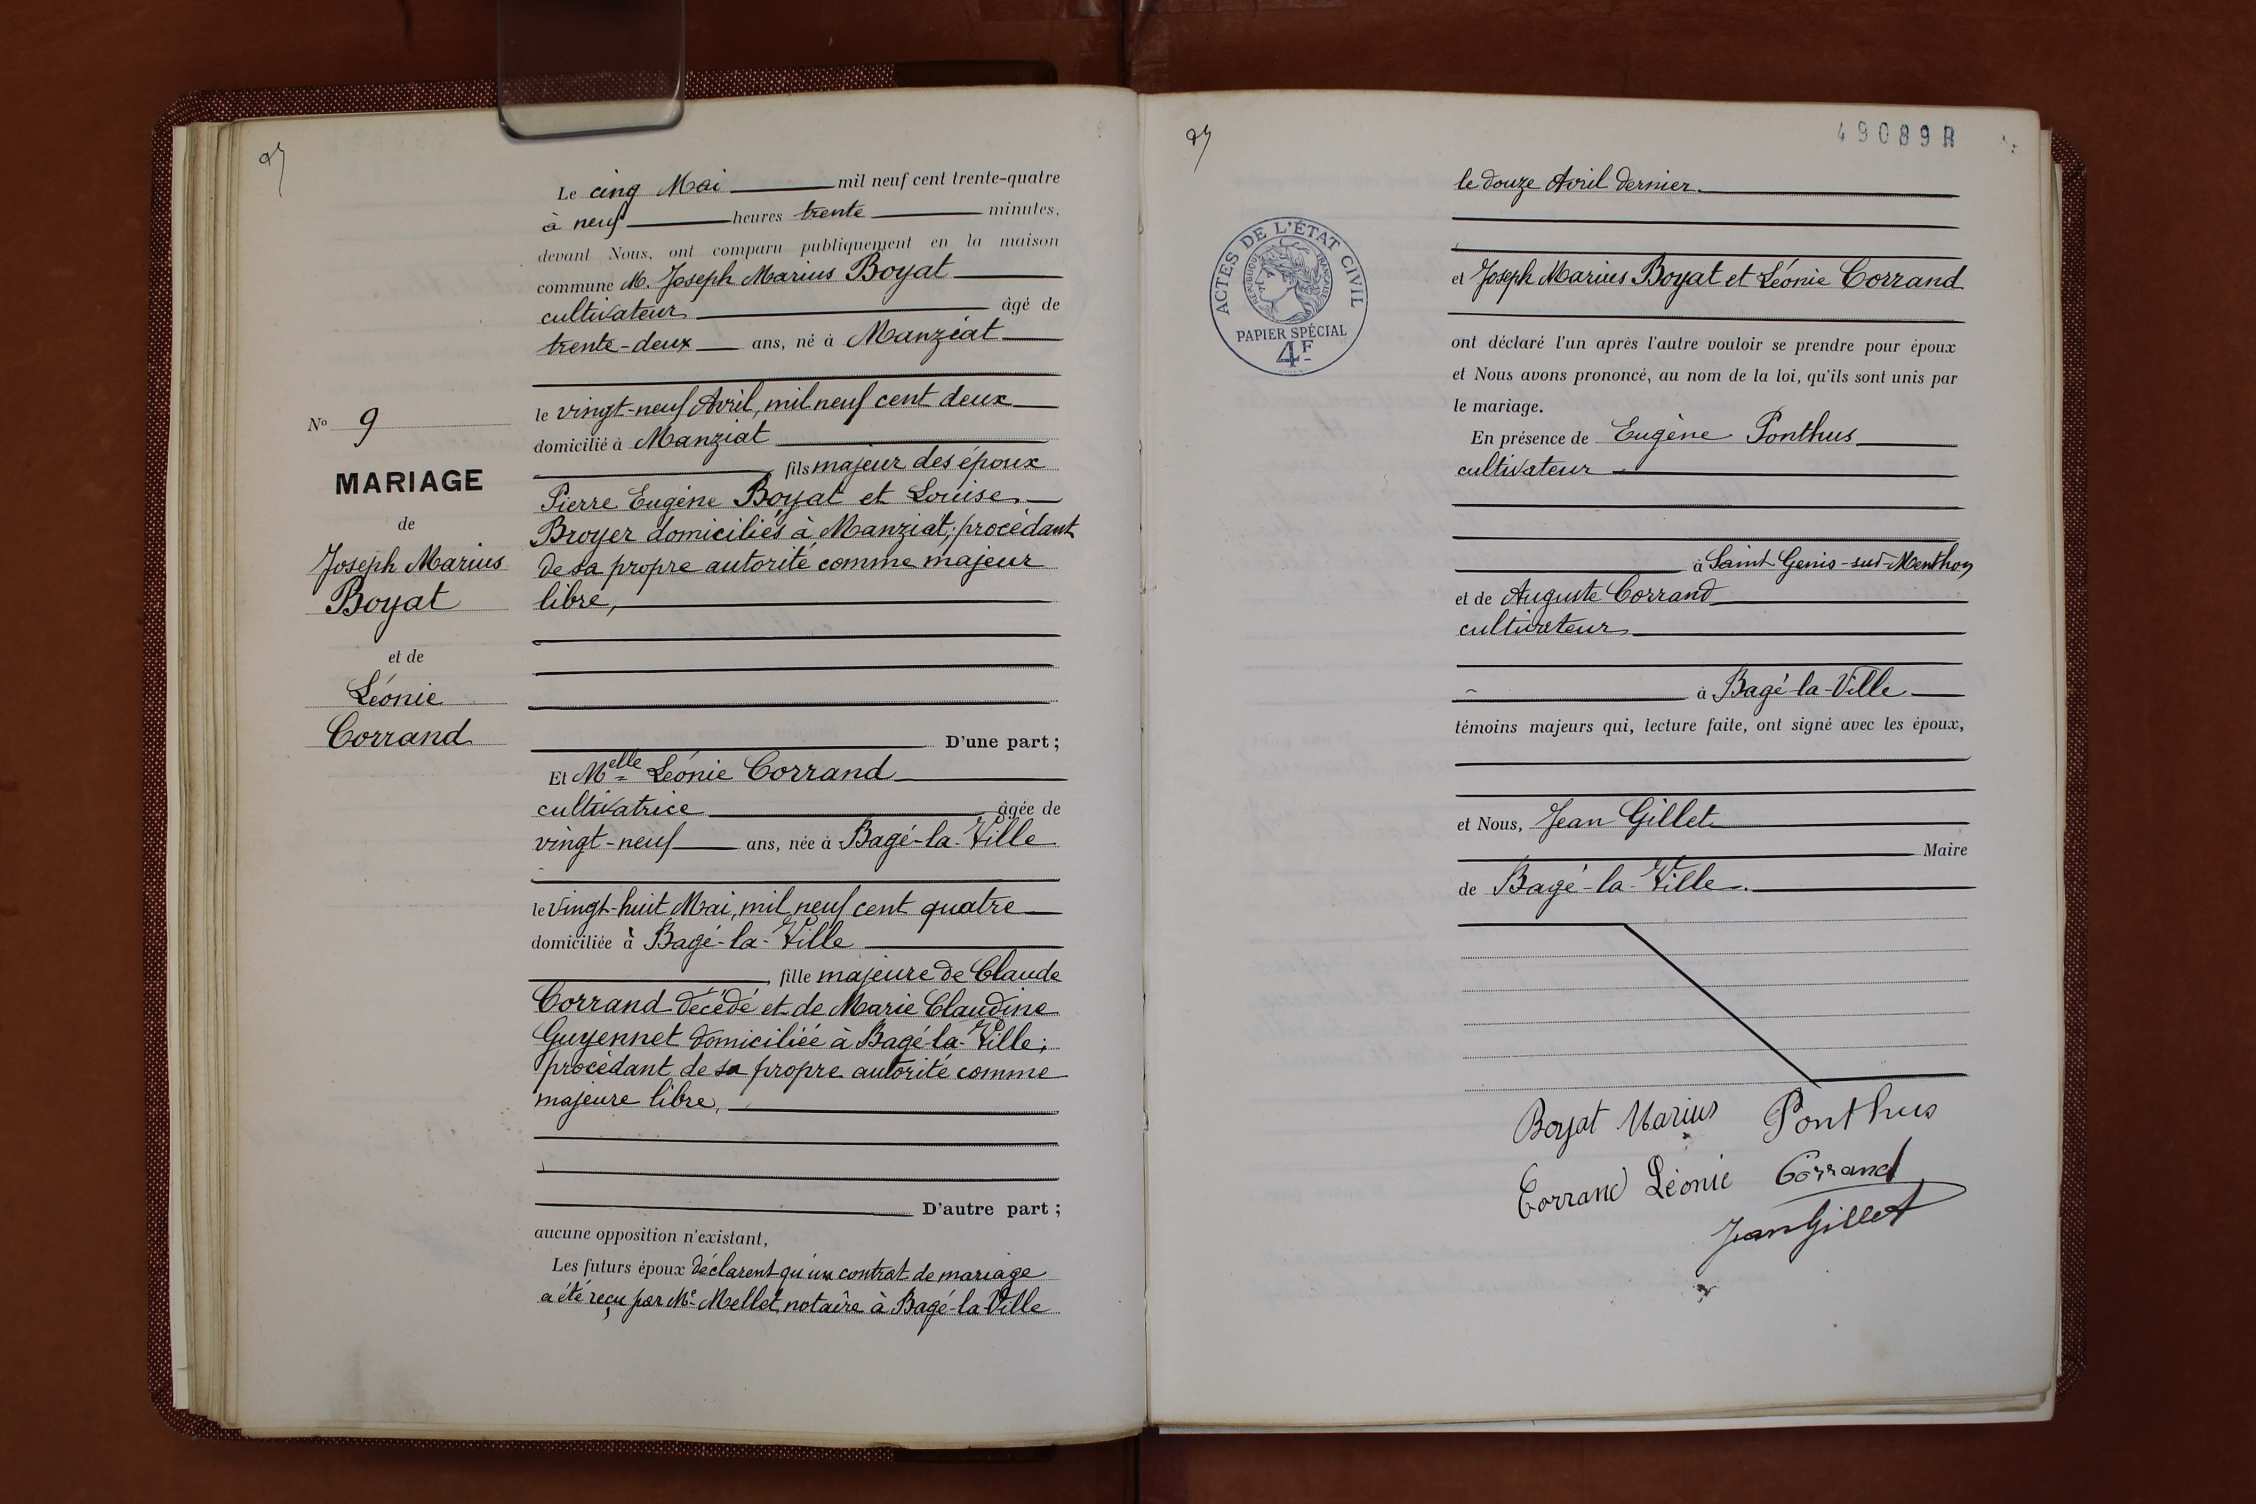 27
Le cinq Mai mil neuf cent trente-quatre
à neuf heures trente minutes,
devant Nous, ont comparu publiquement en la maison
commune M. Joseph Marius Boyat
cultivateur âgé de
trente-deux ans, né à Manziat
le vingt-neuf Avril, mil neuf cent deux
domicilié à Manziat
fils majeur des époux
Pierre Eugène Boyat et Louise
Broyer domiciliés à Manziat; procédant
de sa propre autorité comme majeur
libre,
D'une part;
Et Melle Léonie Corrand
cultivatrice âgée de
vingt-neuf ans, née à Bagé-la-Ville
le vingt-huit Mai, mil neuf cent quatre
domiciliée à Bagé-la-Ville
, fille majeure de Claude
Corrand décédé et de Marie Claudine
Guyennet domiciliée à Bagé-la-Ville;
procédant de sa propre autorité comme
majeure libre,
D'autre part;
aucune opposition n'existant,
Les futurs époux déclarent qu'un contrat de mariage
a été reçu par Me Mellet, notaire à Bagé-la-Ville
No 9
MARIAGE
de
Joseph Marius
Boyat
et de
Léonie
Corrand
27
49089R
ACTES DE L'ÉTAT CIVIL
RÉPUBLIQUE FRANÇAISE
PAPIER SPÉCIAL
4F
le douze Avril dernier.
et Joseph Marius Boyat et Léonie Corrand
ont déclaré l'un après l'autre vouloir se prendre pour époux
et Nous avons prononcé, au nom de la loi, qu'ils sont unis par
le mariage.
En présence de Eugène Ponthus
cultivateur
à Saint Genis-sur-Menthon
et de Auguste Corrand
cultivateur
à Bagé-la-Ville
témoins majeurs qui, lecture faite, ont signé avec les époux,
et Nous, Jean Gillet
Maire
de Bagé-la-Ville.
Boyat Marius Ponthus
Corrand Léonie Corrand
Jean Gillet